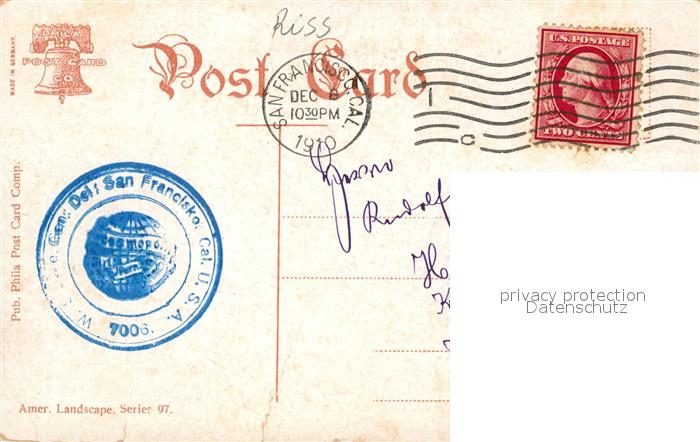 Riss
PHILA
POST CARD
CO
MADE IN GERMANY.
Post Card
SAN FRANCISCO, CAL.
DEC
10 30 PM
1910
1
C
U.S. POSTAGE
TWO CENTS
Rudolf
privacy protection
Datenschutz
Pub. Phila Post Card Comp.
Gen. Del. San Francisko, Cal. U.S.A.
7006.
Amer. Landscape, Serier 97.